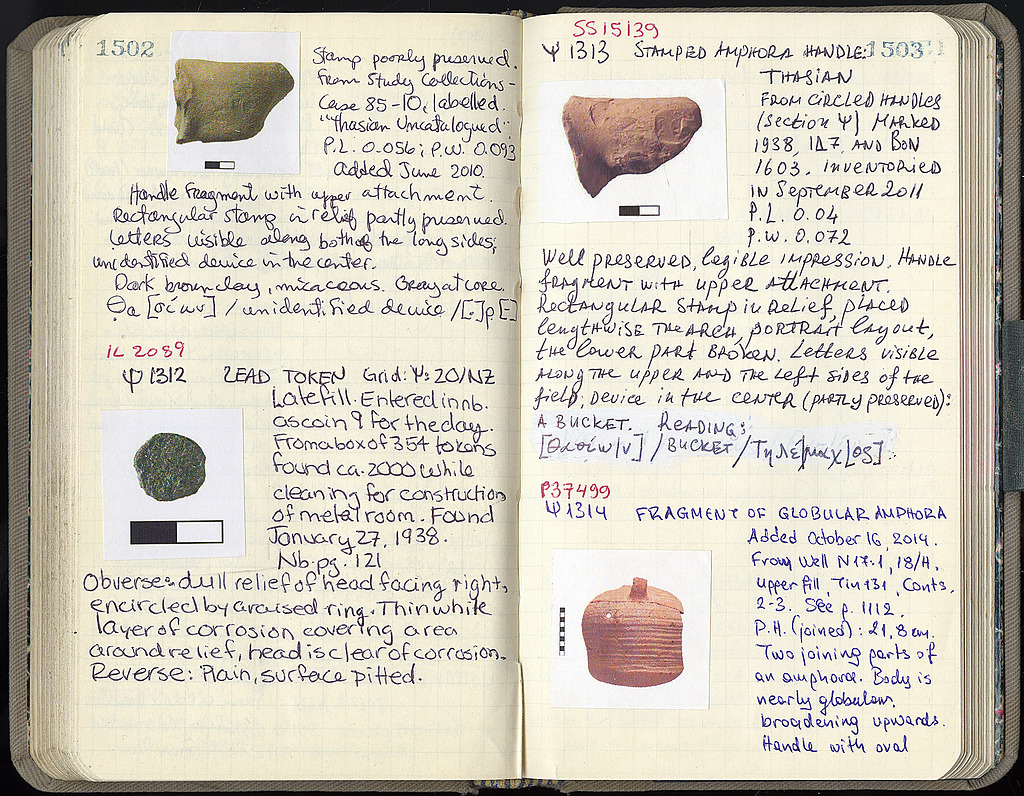 1502
Stamp poorly preserved.
From Study Collections-
Case 85-10, labelled.
"Thasian Uncatalogued".
P.L. 0.056; P.W. 0.093
Added June 2010.
Handle fragment with upper attachment.
Rectangular stamp in relief partly preserved.
Letters visible along both of the long sides;
unidentified device in the center.
Dark brown clay, micaceous. Gray at core.
Θα [σίων] / unidentified device / [.]ρ[-]
IL 2089
Ψ 1312 LEAD TOKEN Grid: Ψ: 20/NZ
Late fill. Entered in nb.
as coin 9 for the day.
From a box of 354 tokens
found ca. 2000 while
cleaning for construction
of metal room. Found
January 27, 1938.
Nb. pg. 121
Obverse: dull relief of head facing right,
encircled by a raised ring. Thin white
layer of corrosion covering area
around relief, head is clear of corrosion.
Reverse: Plain, surface pitted.
1503
SS 15139
Ψ 1313 STAMPED AMPHORA HANDLE:
THASIAN
FROM CIRCLED HANDLES
(Section Ψ) MARKED
1938, 1Δ7, AND BON
1603. INVENTORIED
IN SEPTEMBER 2011
P.L. 0.04
P.W. 0.072
Well preserved, legible impression. Handle
fragment with upper attachment.
Rectangular stamp in relief, placed
lengthwise the arch, portrait layout,
the lower part broken. Letters visible
along the upper and the left sides of the
field; device in the center (partly preserved):
A BUCKET. READING:
[Θασίω[ν] / BUCKET / Τηλε]μαχ[ος].
P37499
Ψ 1314 FRAGMENT OF GLOBULAR AMPHORA
Added October 16, 2014.
From Well N17:1, 18/H.
upper fill, Tin 131, Conts.
2-3. See p. 1112.
P.H. (joined): 21,8 cm.
Two joining parts of
an amphora. Body is
nearly globular,
broadening upwards.
Handle with oval